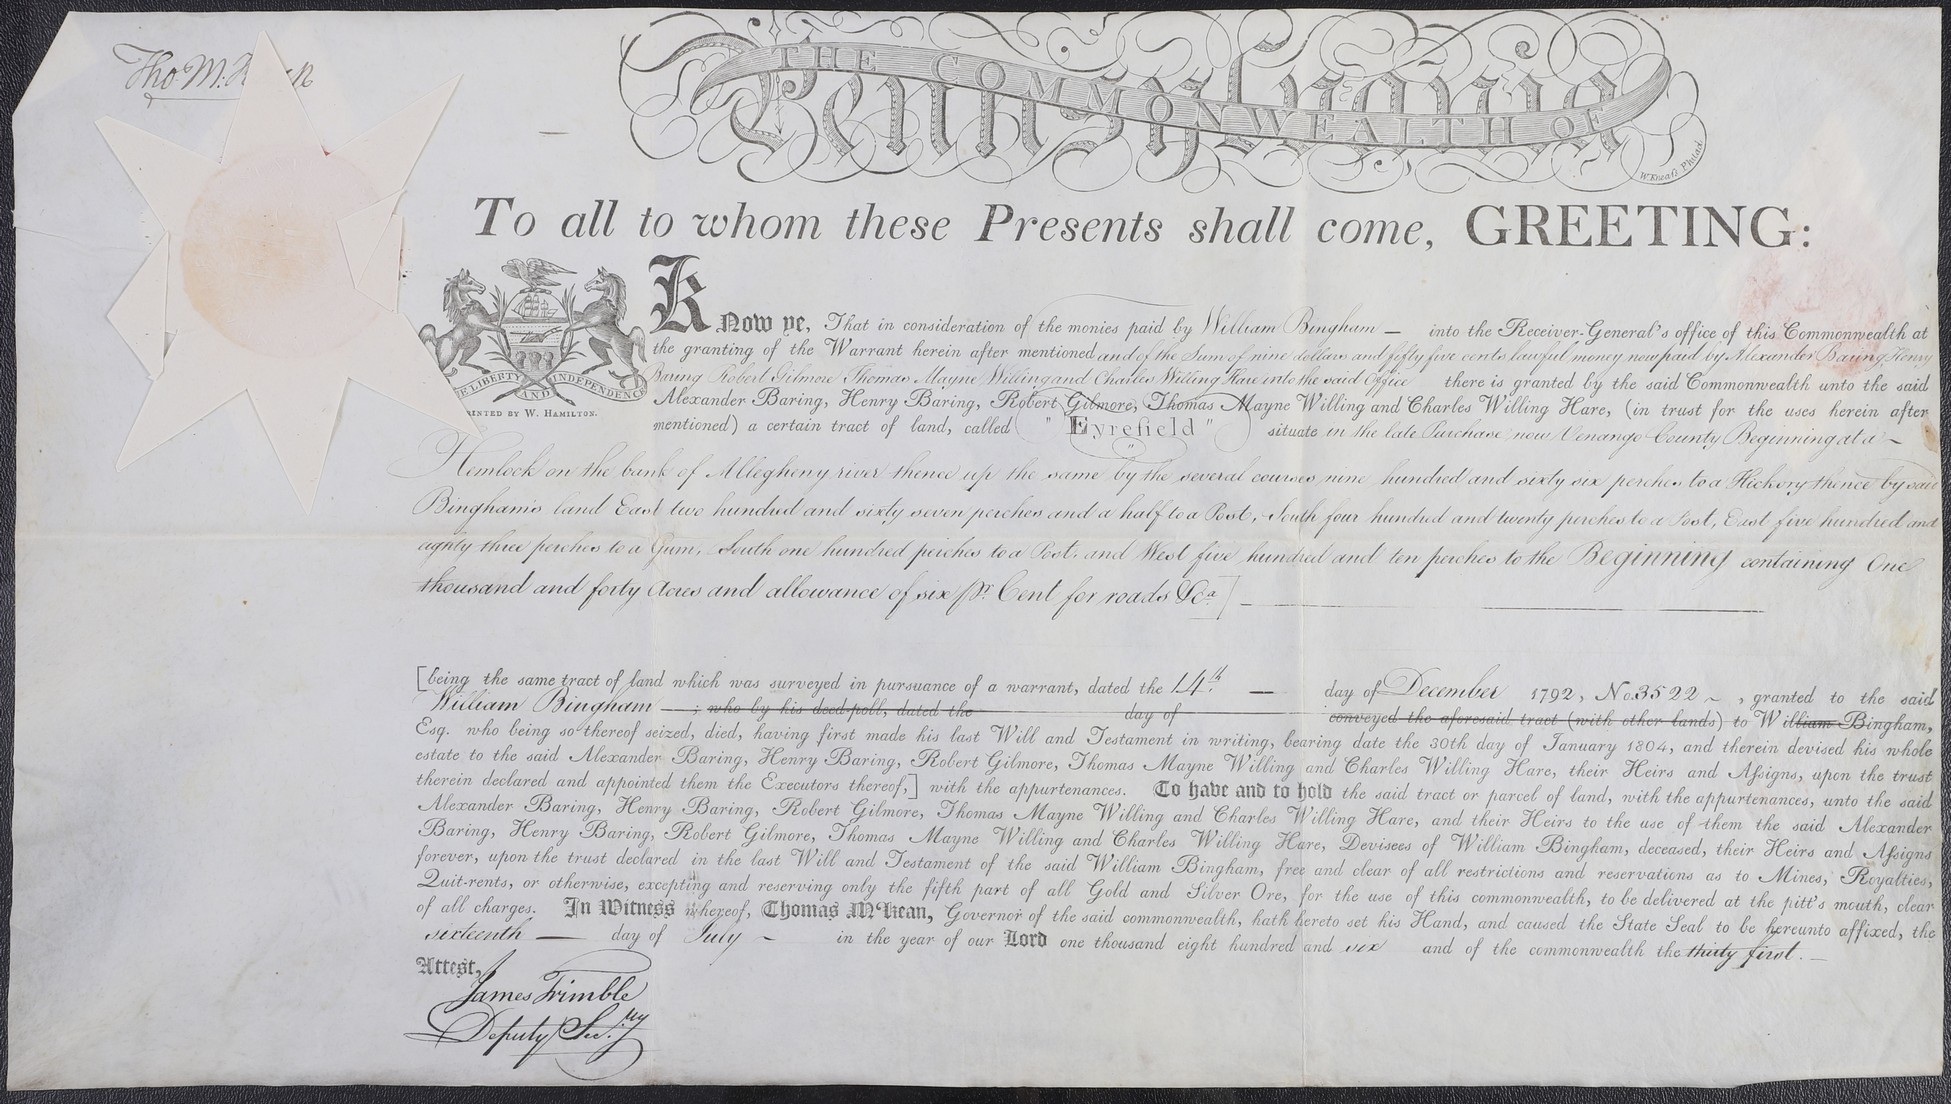 Tho M:K
THE COMMONWEALTH OF
Pennsylvania
W. Kneafs Philad.
To all to whom these Presents shall come, GREETING:
KNow ye, That in consideration of the monies paid by William Bingham — into the Receiver-General's office of this Commonwealth at
the granting of the Warrant herein after mentioned and of the Sum of nine dollars and fifty five cents lawful money now paid by Alexander Baring, Henry
Baring Robert Gilmore Thomas Mayne Willing and Charles Willing Hare into the said Office there is granted by the said Commonwealth unto the said
Alexander Baring, Henry Baring, Robert Gilmore, Thomas Mayne Willing and Charles Willing Hare, (in trust for the uses herein after
mentioned) a certain tract of land, called " Eyrefield " situate in the late Purchase now Venango County Beginning at a –
E LIBERTY AND INDEPENDENCE
INTED BY W. HAMILTON.
Hemlock on the bank of Allegheny river thence up the same by the several courses nine hundred and sixty six perches to a Hickory thence by said
Bingham's land East two hundred and sixty seven perches and a half to a Post, South four hundred and twenty perches to a Post, East five hundred and
eighty three perches to a Gum, South one hundred perches to a Post, and West five hundred and ten perches to the Beginning containing One
thousand and forty Acres and allowance of six pr. Cent for roads &ca.]
[being the same tract of land which was surveyed in pursuance of a warrant, dated the 14th. — day of December 1792, No. 3522 ~ , granted to the said
William Bingham — ; who by his deed-poll, dated the day of conveyed the aforesaid tract (with other lands) to William Bingham,
Esq. who being so thereof seized, died, having first made his last Will and Testament in writing, bearing date the 30th day of January 1804, and therein devised his whole
estate to the said Alexander Baring, Henry Baring, Robert Gilmore, Thomas Mayne Willing and Charles Willing Hare, their Heirs and Afsigns, upon the trust
therein declared and appointed them the Executors thereof,] with the appurtenances. To have and to hold the said tract or parcel of land, with the appurtenances, unto the said
Alexander Baring, Henry Baring, Robert Gilmore, Thomas Mayne Willing and Charles Willing Hare, and their Heirs to the use of them the said Alexander
Baring, Henry Baring, Robert Gilmore, Thomas Mayne Willing and Charles Willing Hare, Devisees of William Bingham, deceased, their Heirs and Afsigns
forever, upon the trust declared in the last Will and Testament of the said William Bingham, free and clear of all restrictions and reservations as to Mines, Royalties,
Quit-rents, or otherwise, excepting and reserving only the fifth part of all Gold and Silver Ore, for the use of this commonwealth, to be delivered at the pitt's mouth, clear
of all charges. In Witness whereof, Thomas M'Kean, Governor of the said commonwealth, hath hereto set his Hand, and caused the State Seal to be hereunto affixed, the
sixteenth — day of July – in the year of our Lord one thousand eight hundred and six and of the commonwealth the thirty first. —
Attest,
James Trimble
Deputy Secry.